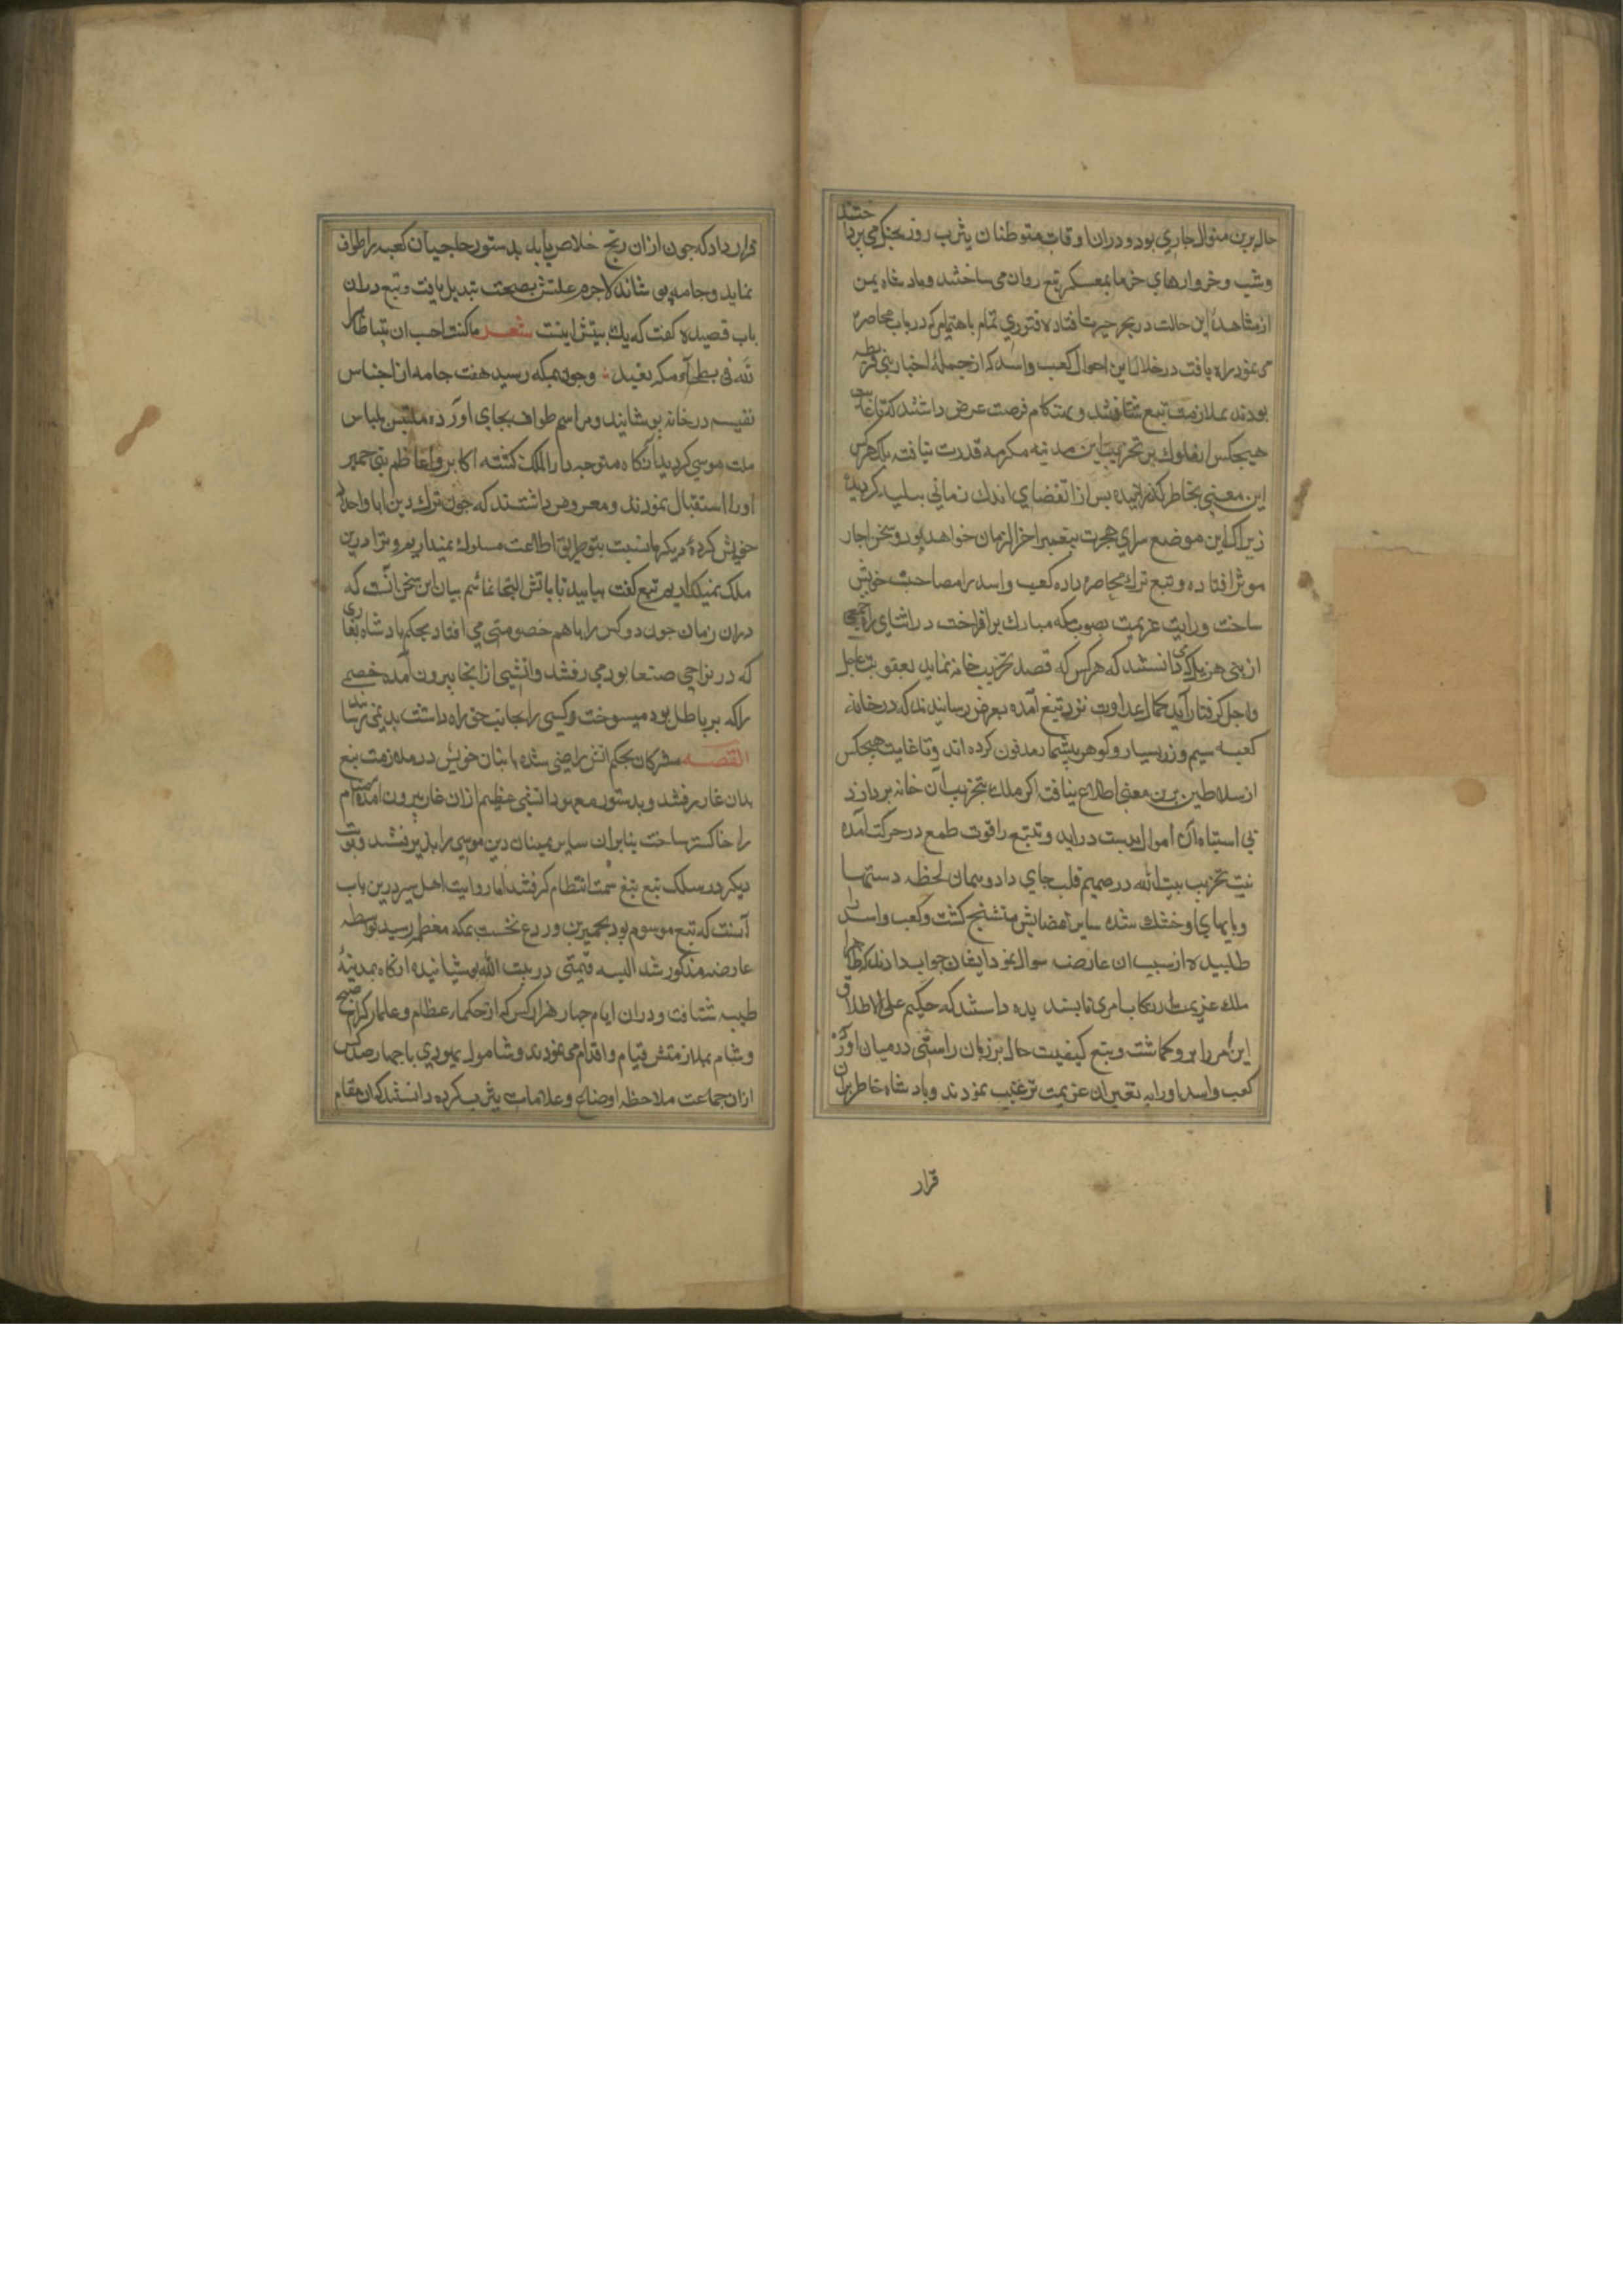 حال برین منوال جاری بود و دران اوقات متوطنان یثرب روز بجنک می پرداختند
وشب و خروارهای خرما بمعسکر تبع روان می ساختند و بادشاه یمن
از مشاهدۀ این حالت در بحر حیرت افتاده فتوری تمام باهتمامی که در باب محاصره
می نمود راه یافت در خلال این احوال کعب واسد که از جملۀ احبار بنی قریظه
بودند بملازمت تبع شتافتند و هنکام فرصت عرض داشتند که تا غایت
هیچکس از ملوک بر تخریب این مدینه مکرمه قدرت نیافته بلکه هرکس
این معنی بخاطر کذرانیده بس از انقضای اندک زمانی ببلیه کردیده
زیرا که این موضع سرای هجرت پیغمبر اخر الزمان خواهد بود و سخن احبار
موثر افتاده و تبع ترک محاصره داده کعب واسد را مصاحب خویش
ساخت و رایت عزیمت بصوب مکه مبارک برافراخت در اثنای راه جمعی
از بنی هزیل که می دانستند که هرکس که قصد تخریب خانه نماید بعقوبت عاجل
واجل کرفتار آید بحکم عداوت نزد تبع آمده بعرض رسانیدند که در خانۀ
کعبه سیم و زر بسیار و کوهر بیشمار مدفون کرده اند و تا غایت هیچکس
از سلاطین برین معنی اطلاع نیافته اکر ملک بتخریب آن خانه بردازد
بی اشتباه آن اموال بدست دراید و تبع را قوت طمع در حرکت آمده
نیت تخریب بیت الله در صمیم قلب جای داد و همان لحظه دستها
و بایهای او خشک شده سایر اعضایش متشنج کشت و کعب واسد را
طلبیده از سبب ان عارضه سوال نمود ایشان جواب دادند که ظاهرا
ملک عزیمت ارتکاب امری نابسندیده داشتند که حکیم علی الاطلاق
این امر را برو کماشت و تبع کیفیت حال بر زبان راستی درمیان آورد
کعب واسد اورا به تغیر ان عزیمت ترغیب نمودند و بادشاه خاطر بران
قرار
قرار داد که جون ازان رنج خلاص یابد بدستور حاجیان کعبه را طواف
نماید و جامه بوشاند لاجرم علتش بصحت تبدیل یافت و تبع دران
باب قصیده کفت که یک بیتش اینست شعر ماکنت احب ان بیتا طاهرا
لله فی بطحاء مکه یعبد و جون بمکه رسید هفت جامه از اجناس
نفیسه در خانه بوشانید و مراسم طواف بجای آورده ملتبس بلباس
ملت موسی کردید انکاه متوجه دار الملک کشته اکابر و اعاظم بنی حمیر
اورا استقبال نمودند و معروض داشتند که جون ترک دین ابا و اجداد
خویش کرده دیکر ما نسبت بتو طریق اطاعت مسلوک نمیداریم و ترا درین
ملک نمیکذاریم تبع کفت بیایید تا باتش التجا نمائیم بیان این سخن آنست که
دران زمان جون دو کس را باهم خصومتی می افتاد بحکم بادشاه بغاری
که در نواحی صنعا بود می رفتند و اتشی از انجا بیرون آمده خصمی
را که بر باطل بود میسوخت و کسی را که بجانب حق راه داشت بدو نمی رسانید
القصه مشرکان بحکم اتش راضی شده با بتان خویش در ملازمت تبع
بدان غار رفتند و بدستور معهود اتشی عظیم ازان غار بیرون آمده اصنام
را خاکستر ساخت بنابران سایر یمینان دین موسی را بذیرفتند و نوبت
دیکر در سلک تبع تبع سمت انتظام کرفتند اما روایت اهل سیر درین باب
آنست که تبع موسوم بود بحمیر بن وردع نخست بمکه معظمه رسید بواسطه
عارضه مذکور شد البسه قیمتی در بیت الله بوشانیده انکاه بمدینۀ
طیبه شتافت و دران ایام جهار هزار کس که از حکماء عظام و علماء کرام صبح
و شام بملازمتش قیام و اقدام می نمودند و شامول یهودی با جهارصد کس
ازان جماعت ملاحظه اوضاع و علامات یثرب کرده دانستند که ان مقام